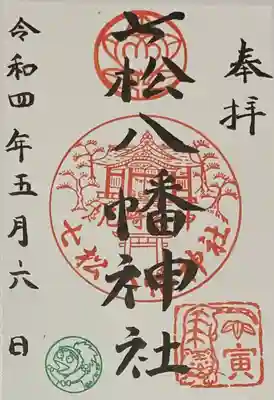 奉拝
七松八幡神社
七松八幡神社
令和四年五月六日
寅